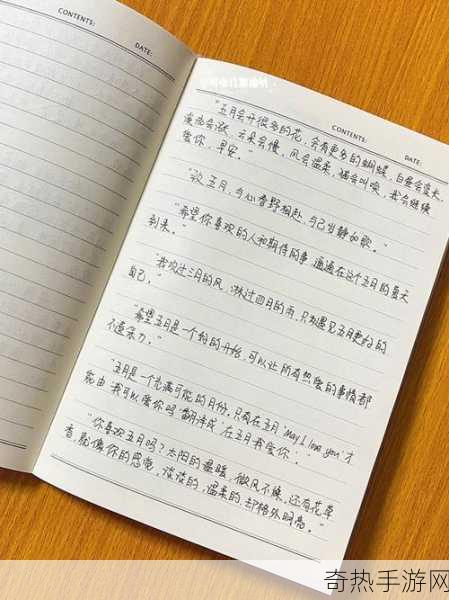 CONTENTS:
DATE:
CONTENTS:
DATE:
"五月会开很多的花，会有更多的蝴蝶，白昼会变长，
会涨，云朵会慢，风会温柔，猫会叫唤，我会继续
爱你，早安。"
"欢五月，与山香野相赴，与己岁静如歌。"
"希望你喜欢的人和期待的事 通通在这个五月的夏天
到来。"
"我吹过三月的风，淋过四月的雨，只为遇见五月更好的
自己。"
"希望五月是一个好的开始，可以让所有热爱的事情都
不遗余力。"
"五月是一个充满可能的月份，只有在五月'May I love you'才
能由 我可以爱你吗 翻译成 在五月我爱你。"
"你喜欢五月吗？太阳的温暖，微风不燥，还有花草
香，就像你的感觉，淡淡的，温柔的，却格外明亮。"
奇热手游网